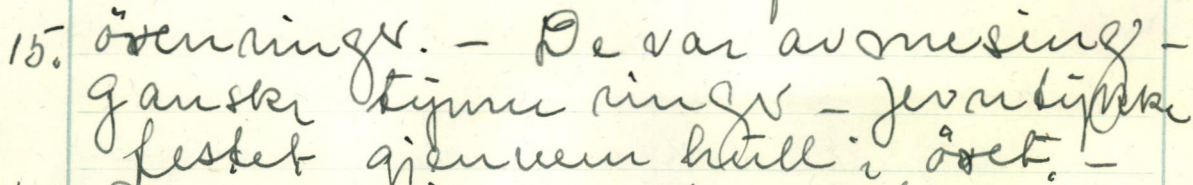 15. örenringer. - De var av mesing -
ganske tynne ringer - jevntykke
festet gjennem hull i öret. -